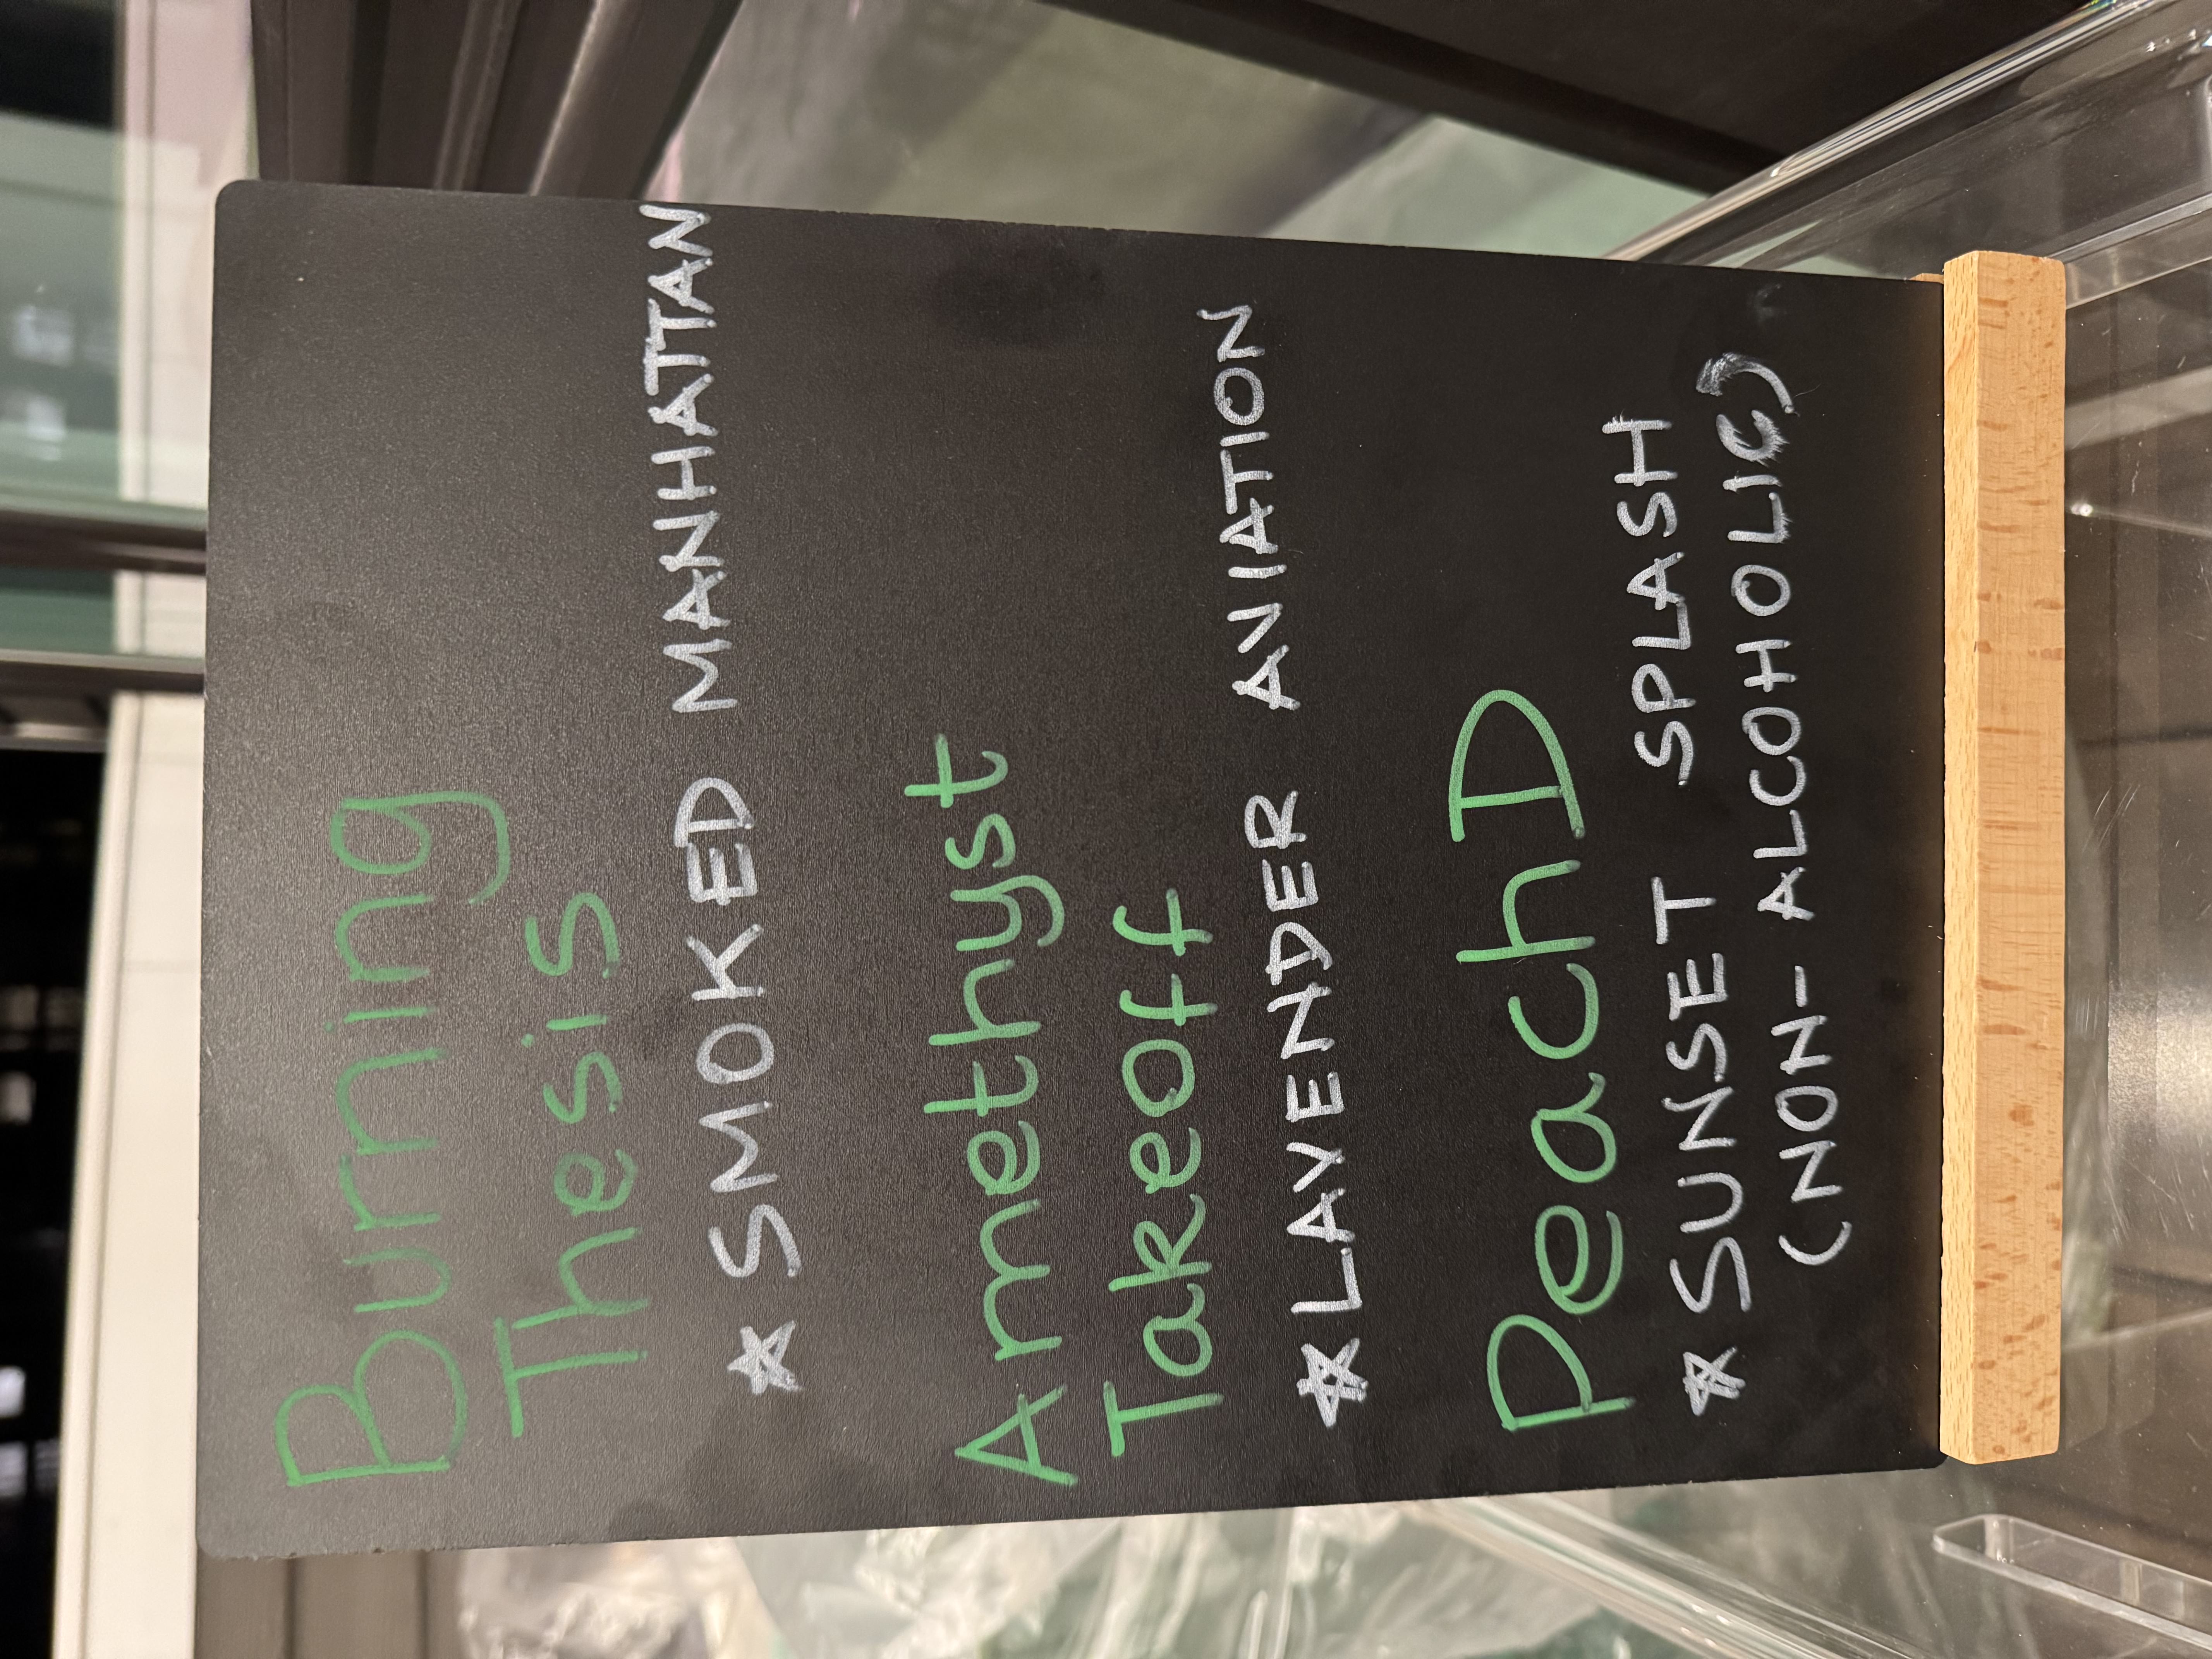 Burning
Thesis
☆ SMOKED MANHATTAN
Amethyst
Takeoff
☆ LAVENDER AVIATION
PeachD
☆ SUNSET SPLASH
(NON-ALCOHOLIC)